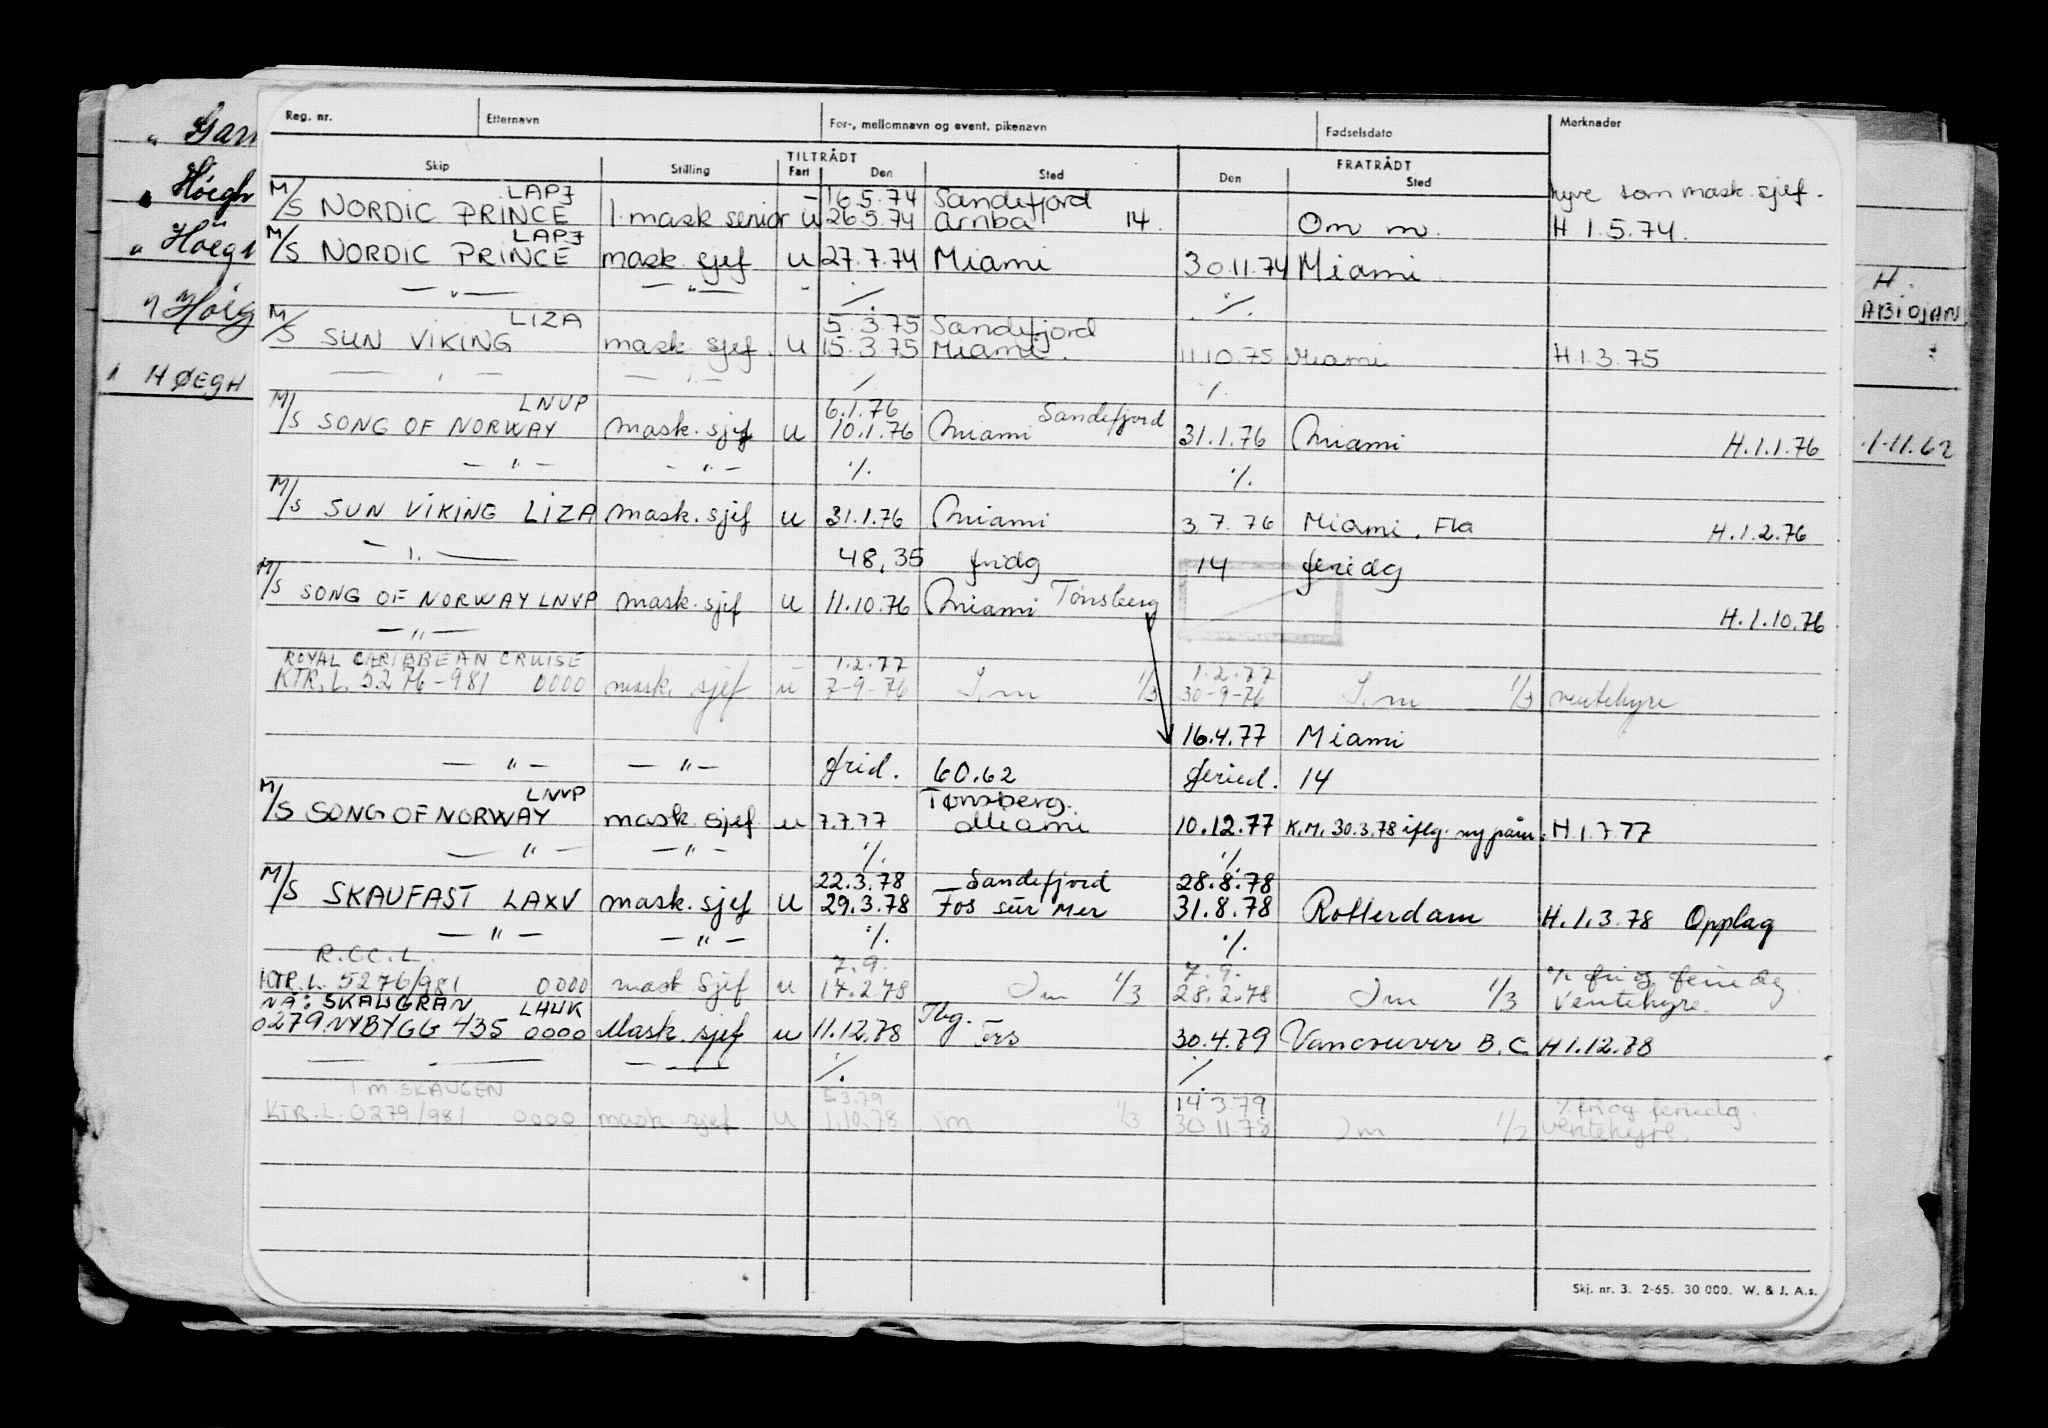 Reg. nr. Etternavn For-, mellomnavn og event. pikenavn Fødselsdato Merknader
TILTRÅDT FRATRÅDT
Skip Stilling Fart Den Sted Den Sted
LAPJ - 16.5.74 Sandefjord hyre som mask. sjef.
M/S NORDIC PRINCE 1. mask senior u 26.5.74 Aruba 14. Om m. H 1.5.74.
LAPJ
M/S NORDIC PRINCE mask. sjef u 27.7.74 Miami 30.11.74 Miami.
— " — — " — - ·/. ·/.
LIZA 5.3.75 Sandefjord
M/S SUN VIKING mask. sjef. u 15.3.75 Miami. 11.10.75 Miami H.1.3.75
·/. ·/.
LNVP 6.1.76 Sandefjord
M/S SONG OF NORWAY mask. sjef u 10.1.76 Miami 31.1.76 Miami H.1.1.76
— " — - " - ·/. ·/.
M/S SUN VIKING LIZA mask. sjef u 31.1.76 Miami 3.7.76 Miami. Fla H.1.2.76
48,35 fridg 14 feriedg
M/S SONG OF NORWAY LNVP mask. sjef u 11.10.76 Miami Tønsberg H.1.10.76
— " —
ROYAL CARIBBEAN CRUISE 1.2.77 1.2.77
KTR.L. 5276-981 0000 mask. sjef u 7-9-76 I.m 1/3 30-9-76 I.m 1/3 ventehyre
16.4.77 Miami
— " — — " — frid. 60.62 feried. 14
LNVP Tønsberg.
M/S SONG OF NORWAY mask. sjef u 7.7.77 Miami 10.12.77 K.M. 30.3.78 iflg. ny påm. H 1.7.77
— " — — " — ·/. ·/.
22.3.78 Sandefjord 28.8.78
M/S SKAUFAST LAXV mask. sjef u 29.3.78 Fos sur Mer 31.8.78 Rotterdam H.1.3.78 Opplag
— " — — " — ·/. ·/.
R.C.C.L. 7.9. 7.9. ·/. fri og feriedg.
KTR.L. 5276/981 0000 mask sjef u 17.2.78 Im 1/3 28.2.78 Im 1/3 Ventehyre.
NÅ: SKAUGRAN LHUK Tbg.
0279 NYBYGG 435 0000 Mask. sjef u 11.12.78 30.4.79 Vancouver B.C. H 1.12.78
·/. ·/.
I.M. SKAUGEN 5.3.79 14.3.79 ·/. fri og feriedg.
KTR.L. 0279/981 0000 mask sjef u 1.10.78 im 1/3 30.11.78 Im ventehyre.
Skj. nr. 3. 2-65. 30 000. W. & J. A.s.
" Høegh
" Høegh
" Høeg
" HØEGH
H.
ABIDJAN
1-11.62